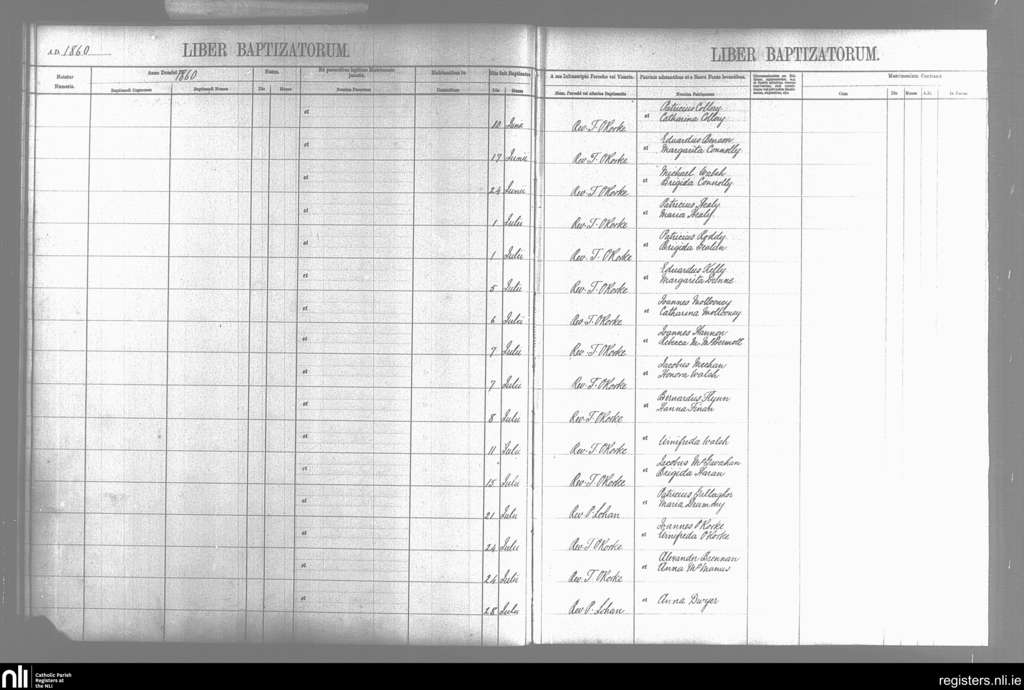 A.D. 1860
LIBER BAPTIZATORUM.
LIBER BAPTIZATORUM.
Notatur
Numerus.
Anno Domini 18
1860
Baptizandi Cognomen
Baptizandi Nomen
Natus.
Die
Mense
Ex parentibus legitimo Matrimonio junctis.
Nomina Parentum
Habitantibus in
Domicilium
Die fuit Baptizatus
Die
Mense
A me Infrascripto Parocho vel Vicario.
Nom. Parochi vel alterius Baptizantis
Patrinis adstantibus et e Sacro Fonte levantibus.
Nomina Patrinorum
Matrimonium Contraxit
Cum
Die
Mense
A.D.
In Paroe.
et 10 Junii Rev T. O'Rorke Patricius Collery
et Catharina Collery
et 17 Junii Rev T. O'Rorke Eduardus Benson
et Margarita Connolly
et 24 Junii Rev T. O'Rorke Michael Walsh
et Brigida Connolly
et 1 Julii Rev T. O'Rorke Patricius Healy
et Maria Healy
et 1 Julii Rev. T. O'Rorke Patricius Roddy
et Brigida
et 5 Julii Rev T. O'Rorke Eduardus Kelly
et Margarita
et 6 Julii Rev T. O'Rorke Joannes Mollooney
et Catharina Mollooney
et 7 Julii Rev T. O'Rorke Joannes Hannon
et Rebecca M. McDermott
et 7 Julii Rev T. O'Rorke Jacobus Meehan
et Honora Walsh
et 8 Julii Rev T. O'Rorke Bernardus Flynn
et Hanna Finan
et 11 Julii Rev T. O'Rorke
et Winifrida Walsh
et 15 Julii Rev T. O'Rorke Jacobus
et Brigida Haran
et 21 Julii Rev P. Lohan Patricius Gallagher
et Maria
et 24 Julii Rev T. O'Rorke Joannes O'Rorke
et Winifreda O'Rorke
et 24 Julii Rev T. O'Rorke Alexander Brennan
et Anna McManus
et 28 Julii Rev P. Lohan
et Anna Dwyer
nli
Catholic Parish
Registers at
the NLI
registers.nli.ie